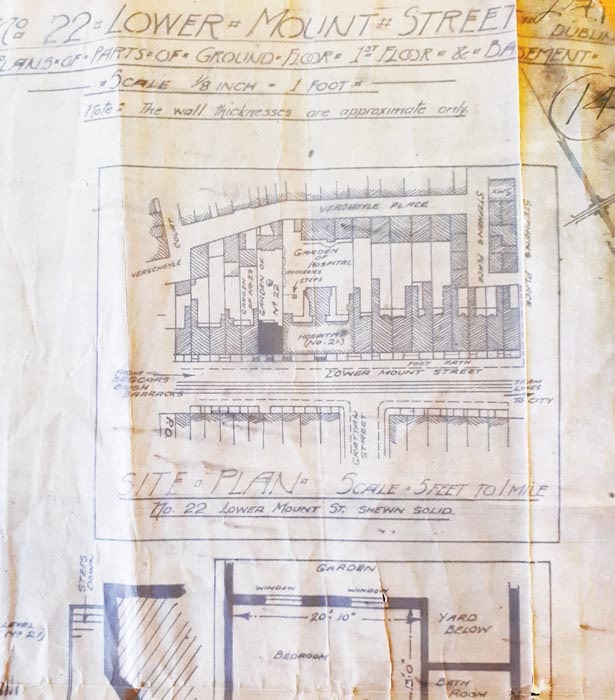 No 22 LOWER MOUNT STREET
DUBLIN
PLANS OF PARTS OF GROUND FLOOR 1ST FLOOR & BASEMENT
SCALE 1/8 INCH = 1 FOOT
Note: The wall thicknesses are approximate only.
14
VERSCHOYLE PLACE
STEPHENS PLACE
STEPHENS PLACE
VERSCHOYLE COURT
GARDEN
OF
HOSPITAL
ROCKERIES
STEPS
GARDEN
OF No 23
GARDEN OF
No 22
HOSPITAL
(No. 21)
FOOT PATH
LOWER MOUNT STREET
FROM
BEGGARS
BUSH
BARRACKS
TRAM
LINES
TO CITY
GRATTAN
STREET
SITE PLAN SCALE 5 FEET TO 1 MILE
No. 22 LOWER MOUNT ST. SHEWN SOLID.
STEPS
DOWN
GARDEN
WINDOW
WINDOW
20'-10"
LEVEL
(No 21)
YARD
BELOW
BEDROOM
BATH
ROOM